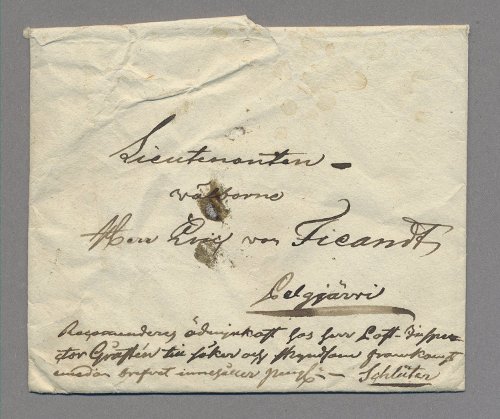 Lieutenanten
välborne
Herr Eric von Ficandt
Lelgjärvi
Recommenderas ödmjukast hos herr Post-Inspec-
tor Gråstén till säker och skyndsam framkomst
medan brefvet innehåller pengr — Schlüter